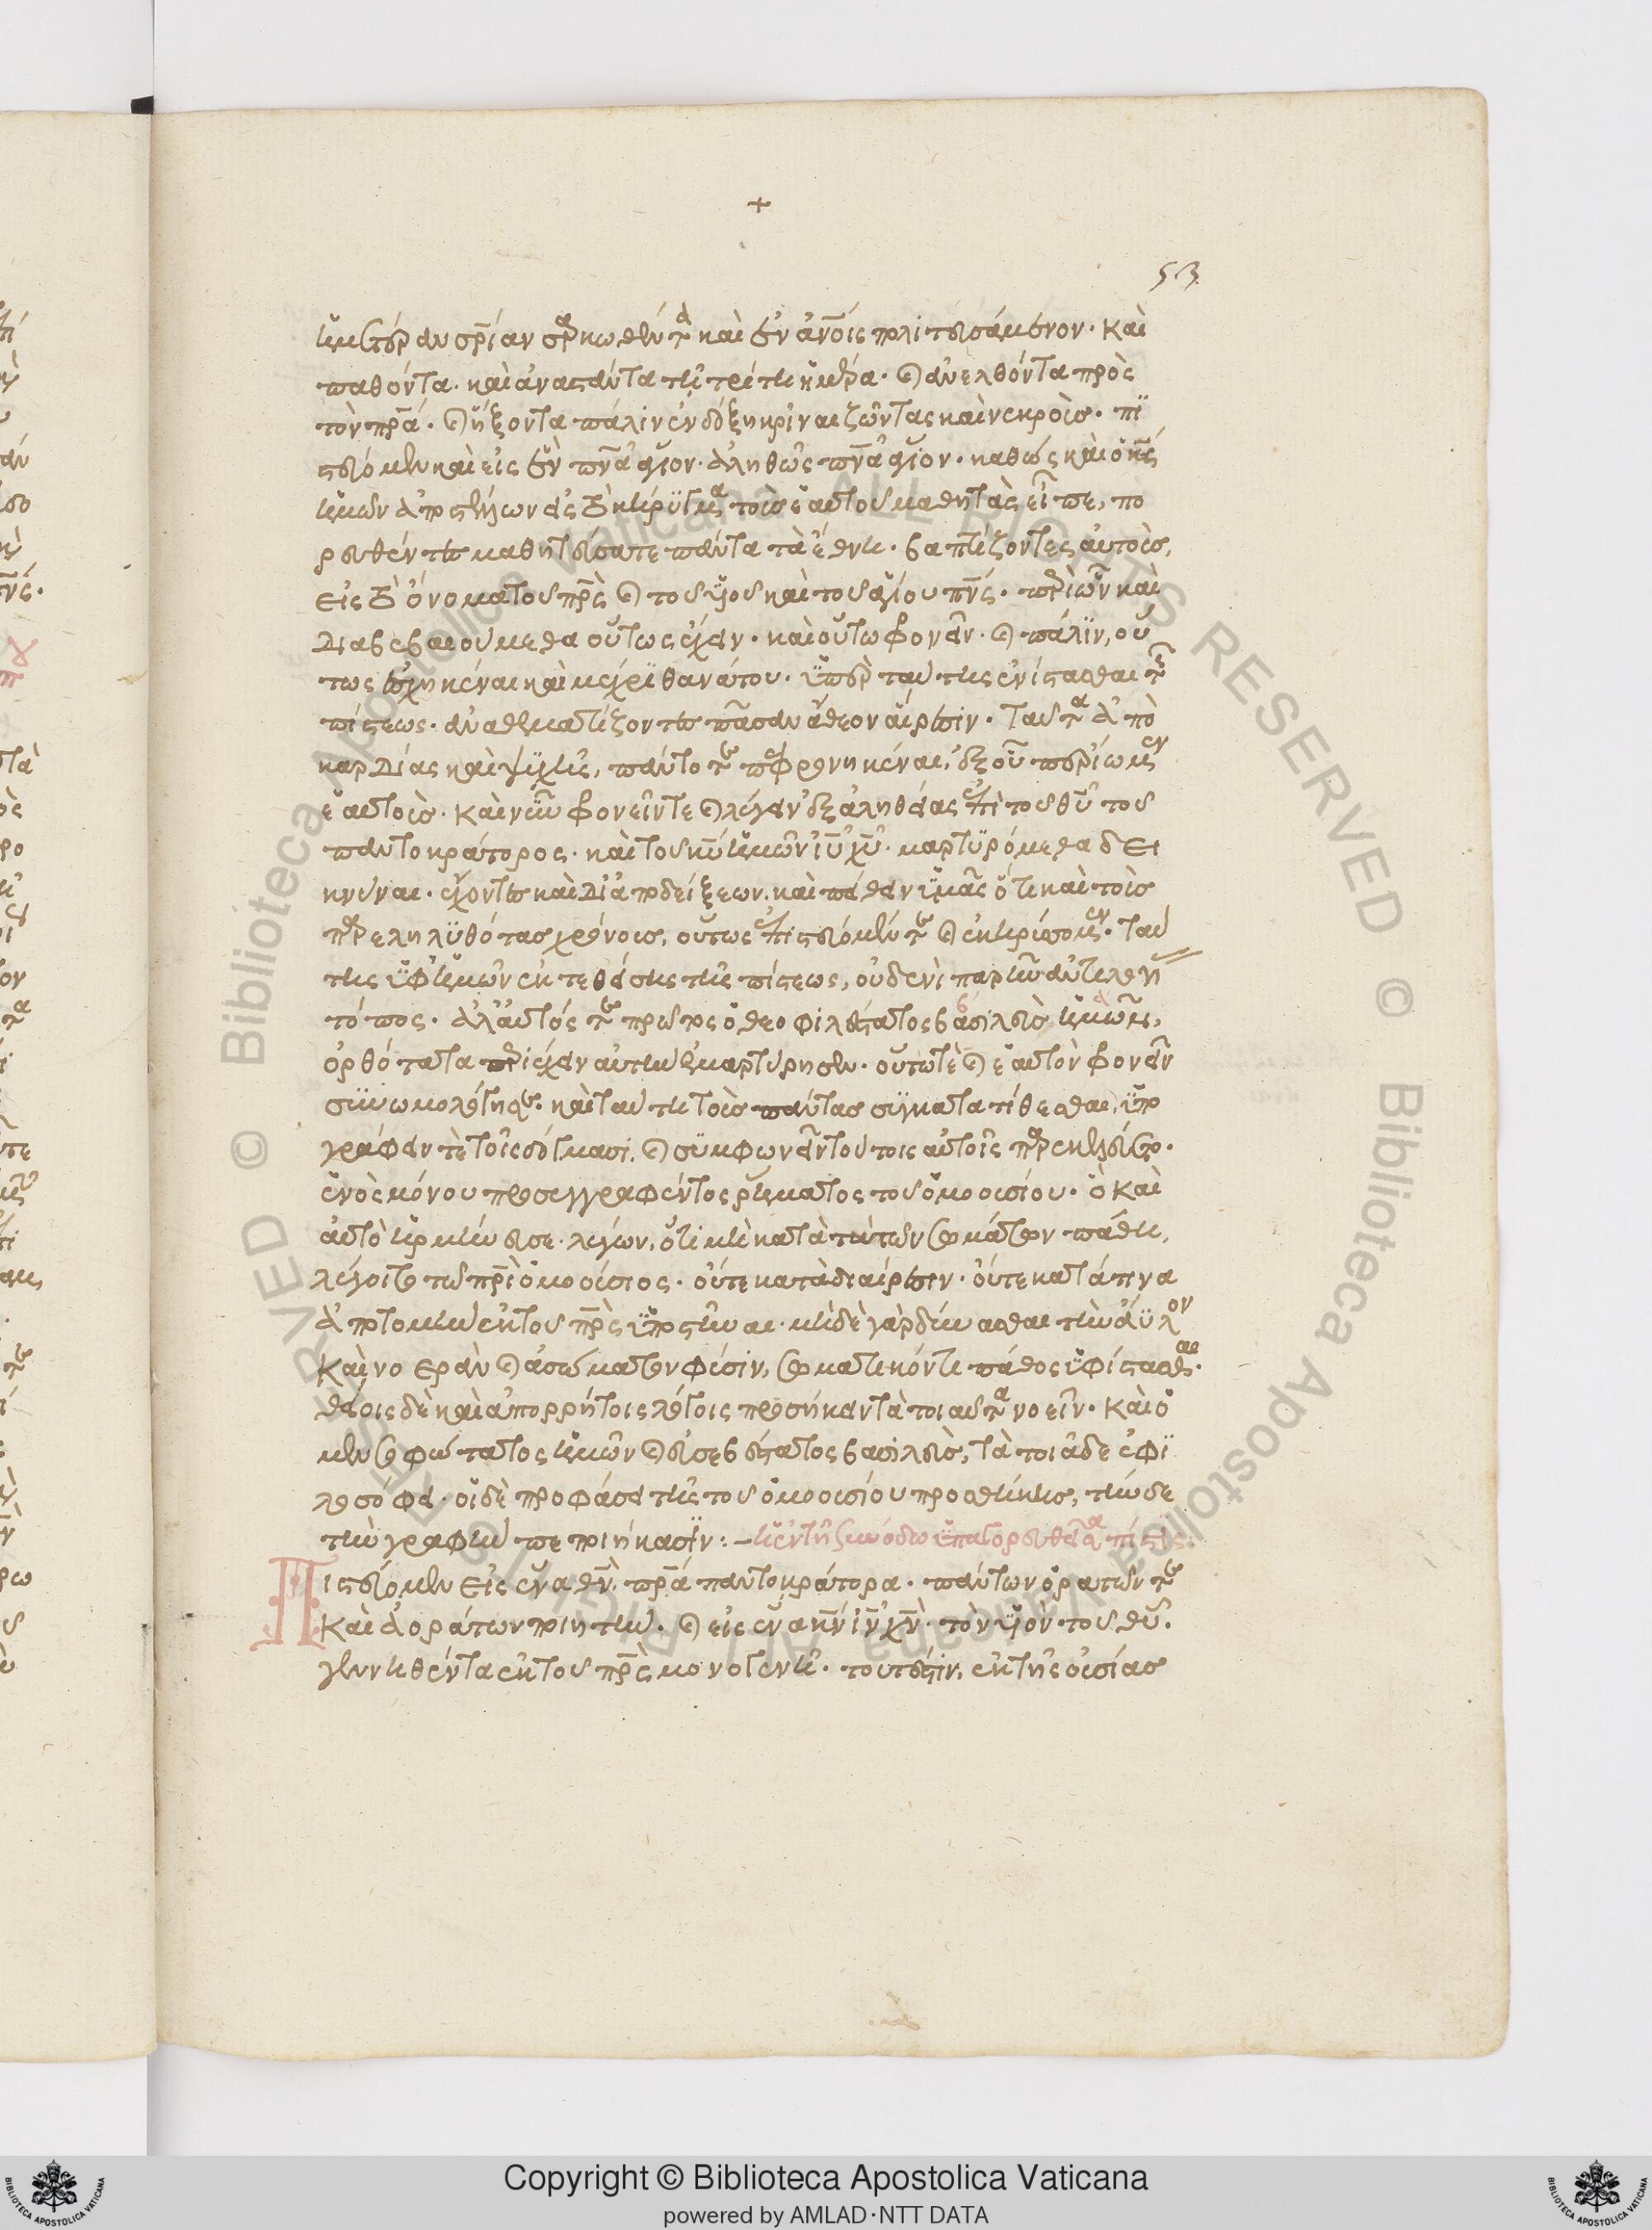 +
53
ἡμετέραν σρίαν σαρκωθέντα καὶ ἐν ἀνοις πολιτευσάμενον. καὶ
παθόντα. καὶ ἀναστάντα τῇ τρίτῃ ἡμέρα. καὶ ἀνελθόντα πρὸς
τὸν πρα. καὶ ἥξοντα πάλιν ἐν δόξῃ κρίναι ζῶντας καὶ νεκρούς. πι
στεύομεν καὶ εἰς ἓν πνα ἅγιον. ἀληθῶς πνα ἅγιον. καθὼς καὶ ὁ κς
ἡμῶν ἀποστέλλων εἰς τὸ κήρυγμα τοὺς ἑαυτοῦ μαθητὰς εἶπε, πο
ρευθέντες μαθητεύσατε πάντα τὰ ἔθνη. βαπτίζοντες αὐτοὺς,
εἰς τὸ ὄνομα τοῦ πρς καὶ τοῦ υἱοῦ καὶ τοῦ ἁγίου πνς. περὶ ὧν καὶ
διαβεβαιούμεθα οὕτως ἔχειν. καὶ οὕτω φρονεῖν. καὶ πάλιν, οὕ
τως ἐσχηκέναι καὶ μέχρι θανάτου. ὑπὲρ ταύτης ἐνίστασθαι τῆς
πίστεως. ἀναθεματίζοντες πᾶσαν ἄθεον αἵρεσιν. ταῦτα ἀπὸ
καρδίας καὶ ψυχῆς, πάντοτε πεφρονηκέναι, ἐξ οὗ περ ἴσμεν
ἑαυτοὺς. καὶ νῦν φρονεῖν τε καὶ λέγειν ἐξ ἀληθείας ἐπὶ τοῦ θυ τοῦ
παντοκράτορος. καὶ τοῦ κυ ἡμῶν ιυ χυ. μαρτυρόμεθα δει
κνύναι. ἔχοντες καὶ δι ἀποδείξεων. καὶ πείθειν ὑμᾶς ὅτι καὶ τοὺς
παρεληλυθότας χρόνους, οὕτως ἐπιστεύομέν τε καὶ ἐκηρύσσομεν. ταύ
της ὑφ ἡμῶν ἐκτεθείσης τῆς πίστεως, οὐδενὶ παρῆν ἀντιλογί
τόπος. ἀλλ αὐτός τε πρῶτος ὁ θεοφιλέστατος βασιλεὺς ἡμῶν,
ὀρθότατα περιέχειν αὐτὴν ἐμαρτύρησεν. οὕτω τὲ καὶ ἑαυτὸν φρονεῖν
συνωμολόγησε. καὶ ταύτῃ τοὺς πάντας συγκατατίθεσθαι, ὑπο
γράφειν τὲ τοῖς δόγμασι. καὶ συμφωνεῖν τούτοις αὐτοῖς παρεκελεύετο.
ἑνὸς μόνου προσεγγραφέντος ῥήματος τοῦ ὁμοουσίου. ὃ καὶ
αὐτὸ ἡρμήνευσε. λέγων, ὅτι μὴ κατὰ τὰ τῶν σωμάτων πάθη,
λέγοιτο τῶ πρὶ ὁμοούσιος. οὔτε κατὰ διαίρεσιν. οὔτε κατά τινα
ἀποτομὴν ἐκ τοῦ πρς ὑποστῆναι. μηδὲ γὰρ δύνασθαι τὴν ἄϋλον
καὶ νοερὰν καὶ ἀσώματον φύσιν, σωματικόν τι πάθος ὑφίστασθαι.
θείοις δὲ καὶ ἀπορρήτοις λόγοις προσήκει τὰ τοιαῦτα νοεῖν. καὶ ὁ
μὲν σοφώτατος ἡμῶν καὶ εὐσεβέστατος βασιλεὺς, τὰ τοιάδε ἐφι
λοσόφει. οἱ δὲ προφάσει τῆς τοῦ ὁμοουσίου προσθήκης, τήνδε
τὴν γραφὴν πεποιήκασιν:– ἡ ἐν τῇ συνόδω ὑπαγορευθεῖσα πίστις:
Πιστεύομεν εἰς ἕνα θν. πρα παντοκράτορα. πάντων ὁρατῶν τε
καὶ ἀοράτων ποιητήν. καὶ εἰς ἕνα κν ιν χν. τὸν υἱὸν τοῦ θυ.
γεννηθέντα ἐκ τοῦ πρς μονογενῆ. τουτέστιν, ἐκ τῆς οὐσίας
Copyright © Biblioteca Apostolica Vaticana
powered by AMLAD·NTT DATA